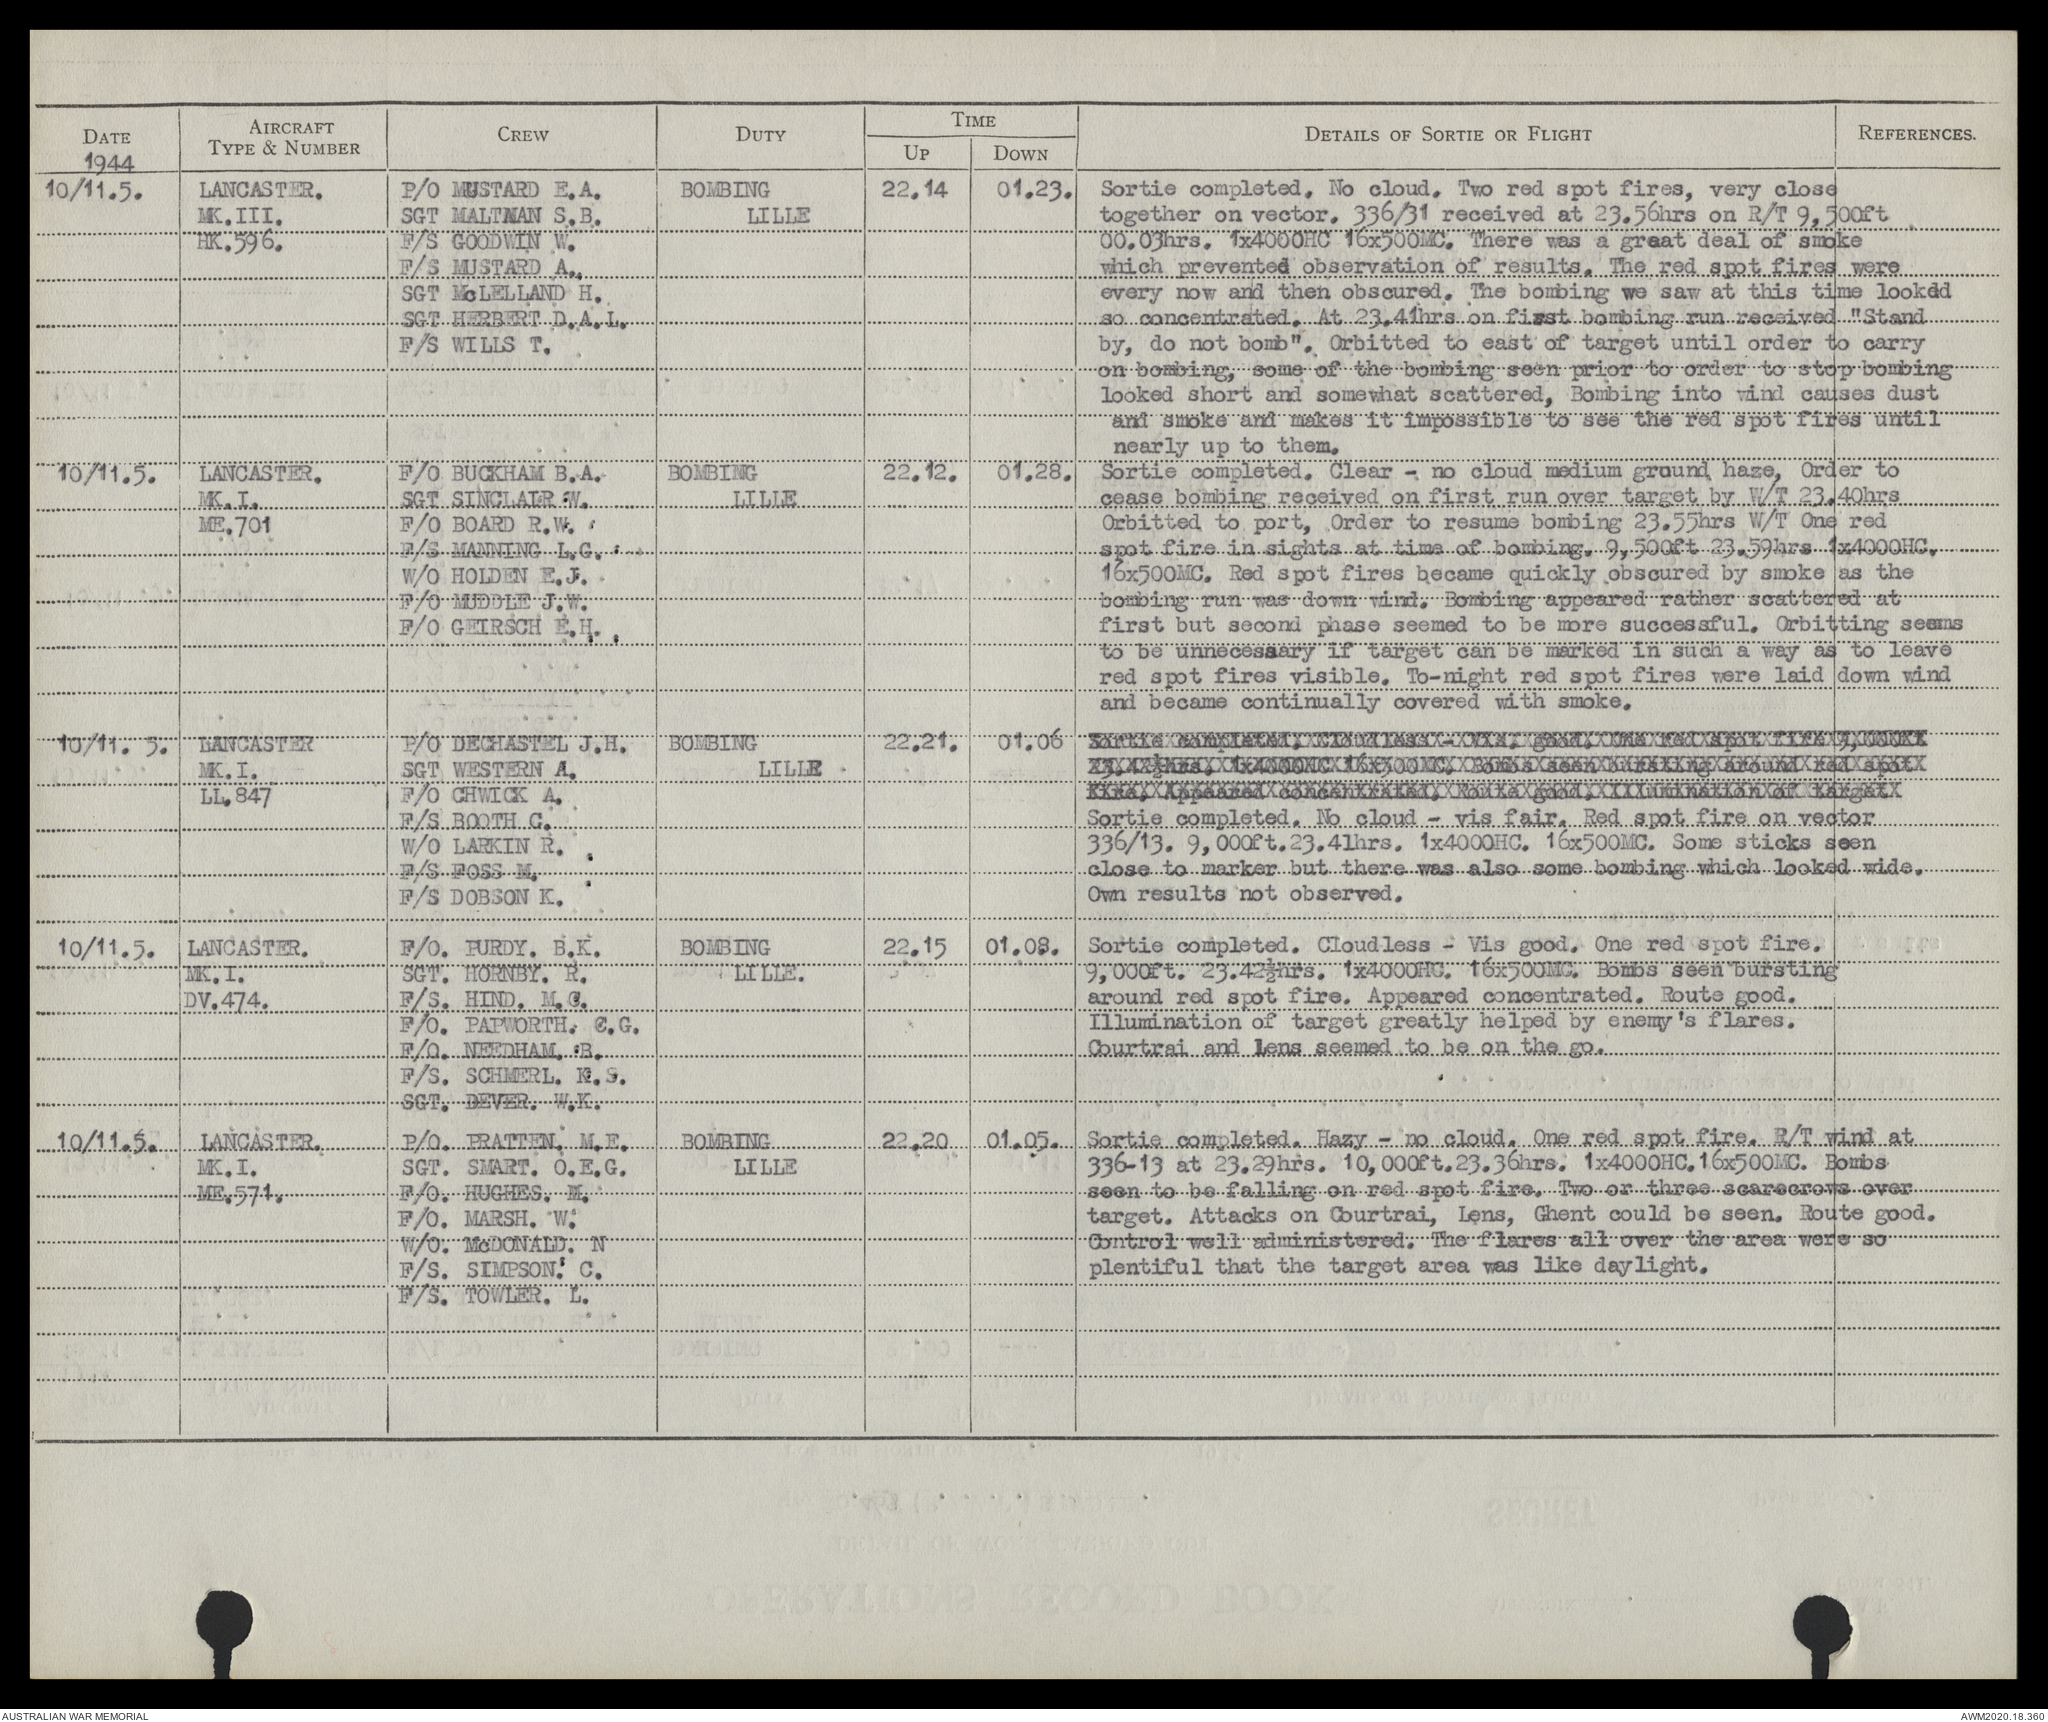 DATE
1944
AIRCRAFT
TYPE & NUMBER
CREW
DUTY
TIME
UP
DOWN
DETAILS OF SORTIE OR FLIGHT
REFERENCES.
10/11.5. LANCASTER. P/O MUSTARD E.A. BOMBING 22.14 01.23. Sortie completed. No cloud. Two red spot fires, very close
MK.III. SGT MALTMAN S.B. LILLE together on vector. 336/31 received at 23.56hrs on R/T 9,500ft
HK.596. F/S GOODWIN W. 00.03hrs. 1x4000HC 16x500MC. There was a great deal of smoke
F/S MUSTARD A. which prevented observation of results. The red spot fires were
SGT McLELLAND H. every now and then obscured. The bombing we saw at this time lookdd
SGT HERBERT D.A.L. so concentrated. At 23.41hrs on first bombing run received "Stand
F/S WILLS T. by, do not bomb". Orbitted to east of target until order to carry
on bombing, some of the bombing seen prior to order to stop bombing
looked short and somewhat scattered, Bombing into wind causes dust
and smoke and makes it impossible to see the red spot fires until
nearly up to them.
10/11.5. LANCASTER. F/O BUCKHAM B.A. BOMBING 22.12. 01.28. Sortie completed. Clear - no cloud medium ground haze, Order to
MK.I. SGT SINCLAIR W. LILLE cease bombing received on first run over target by W/T 23.40hrs
ME.701 F/O BOARD R.W. Orbitted to port, Order to resume bombing 23.55hrs W/T One red
F/S MANNING L.G. spot fire in sights at time of bombing. 9,500ft 23.59hrs 1x4000HC.
W/O HOLDEN E.J. 16x500MC. Red spot fires became quickly obscured by smoke as the
F/O MUDDLE J.W. bombing run was down wind. Bombing appeared rather scattered at
F/O GEIRSCH E.H. first but second phase seemed to be more successful. Orbitting seems
to be unnecessary if target can be marked in such a way as to leave
red spot fires visible. To-night red spot fires were laid down wind
and became continually covered with smoke.
10/11. 5. LANCASTER P/O DECHASTEL J.H. BOMBING 22.21. 01.06 Sortie completed. Cloudless - Vis. good. One red spot fire 9,000
MK.I. SGT WESTERN A. LILLE 23.42½hrs. 1x4000HC 16x500MC. Bombs seen bursting around red spot
LL.847 F/O CHWICK A. fire. Appeared concentrated. Route good. Illumination of target
F/S BOOTH C. Sortie completed. No cloud - vis fair. Red spot fire on vector
W/O LARKIN R. 336/13. 9,000ft.23.41hrs. 1x4000HC. 16x500MC. Some sticks seen
F/S FOSS M. close to marker but there was also some bombing which looked wide.
F/S DOBSON K. Own results not observed.
10/11.5. LANCASTER. F/O. PURDY. B.K. BOMBING 22.15 01.08. Sortie completed. Cloudless - Vis good. One red spot fire.
MK.I. SGT. HORNBY. R. LILLE. 9,000ft. 23.42½hrs. 1x4000HC. 16x500MC. Bombs seen bursting
DV.474. F/S. HIND. M.C. around red spot fire. Appeared concentrated. Route good.
F/O. PAPWORTH. C.G. Illumination of target greatly helped by enemy's flares.
F/O. NEEDHAM. R. Courtrai and Lens seemed to be on the go.
F/S. SCHMERL. K.S.
SGT. DEVER. W.K.
10/11.5. LANCASTER. P/O. PRATTEN. M.E. BOMBING 22.20 01.05. Sortie completed. Hazy - no cloud. One red spot fire. R/T wind at
MK.I. SGT. SMART. O.E.G. LILLE 336-13 at 23.29hrs. 10,000ft.23.36hrs. 1x4000HC.16x500MC. Bombs
ME.571. F/O. HUGHES. M. seen to be falling on red spot fire. Two or three scarecrows over
F/O. MARSH. W. target. Attacks on Courtrai, Lens, Ghent could be seen. Route good.
W/O. McDONALD. N Control well administered. The flares all over the area were so
F/S. SIMPSON. C. plentiful that the target area was like daylight.
F/S. TOWLER. L.
AUSTRALIAN WAR MEMORIAL
AWM2020.18.360